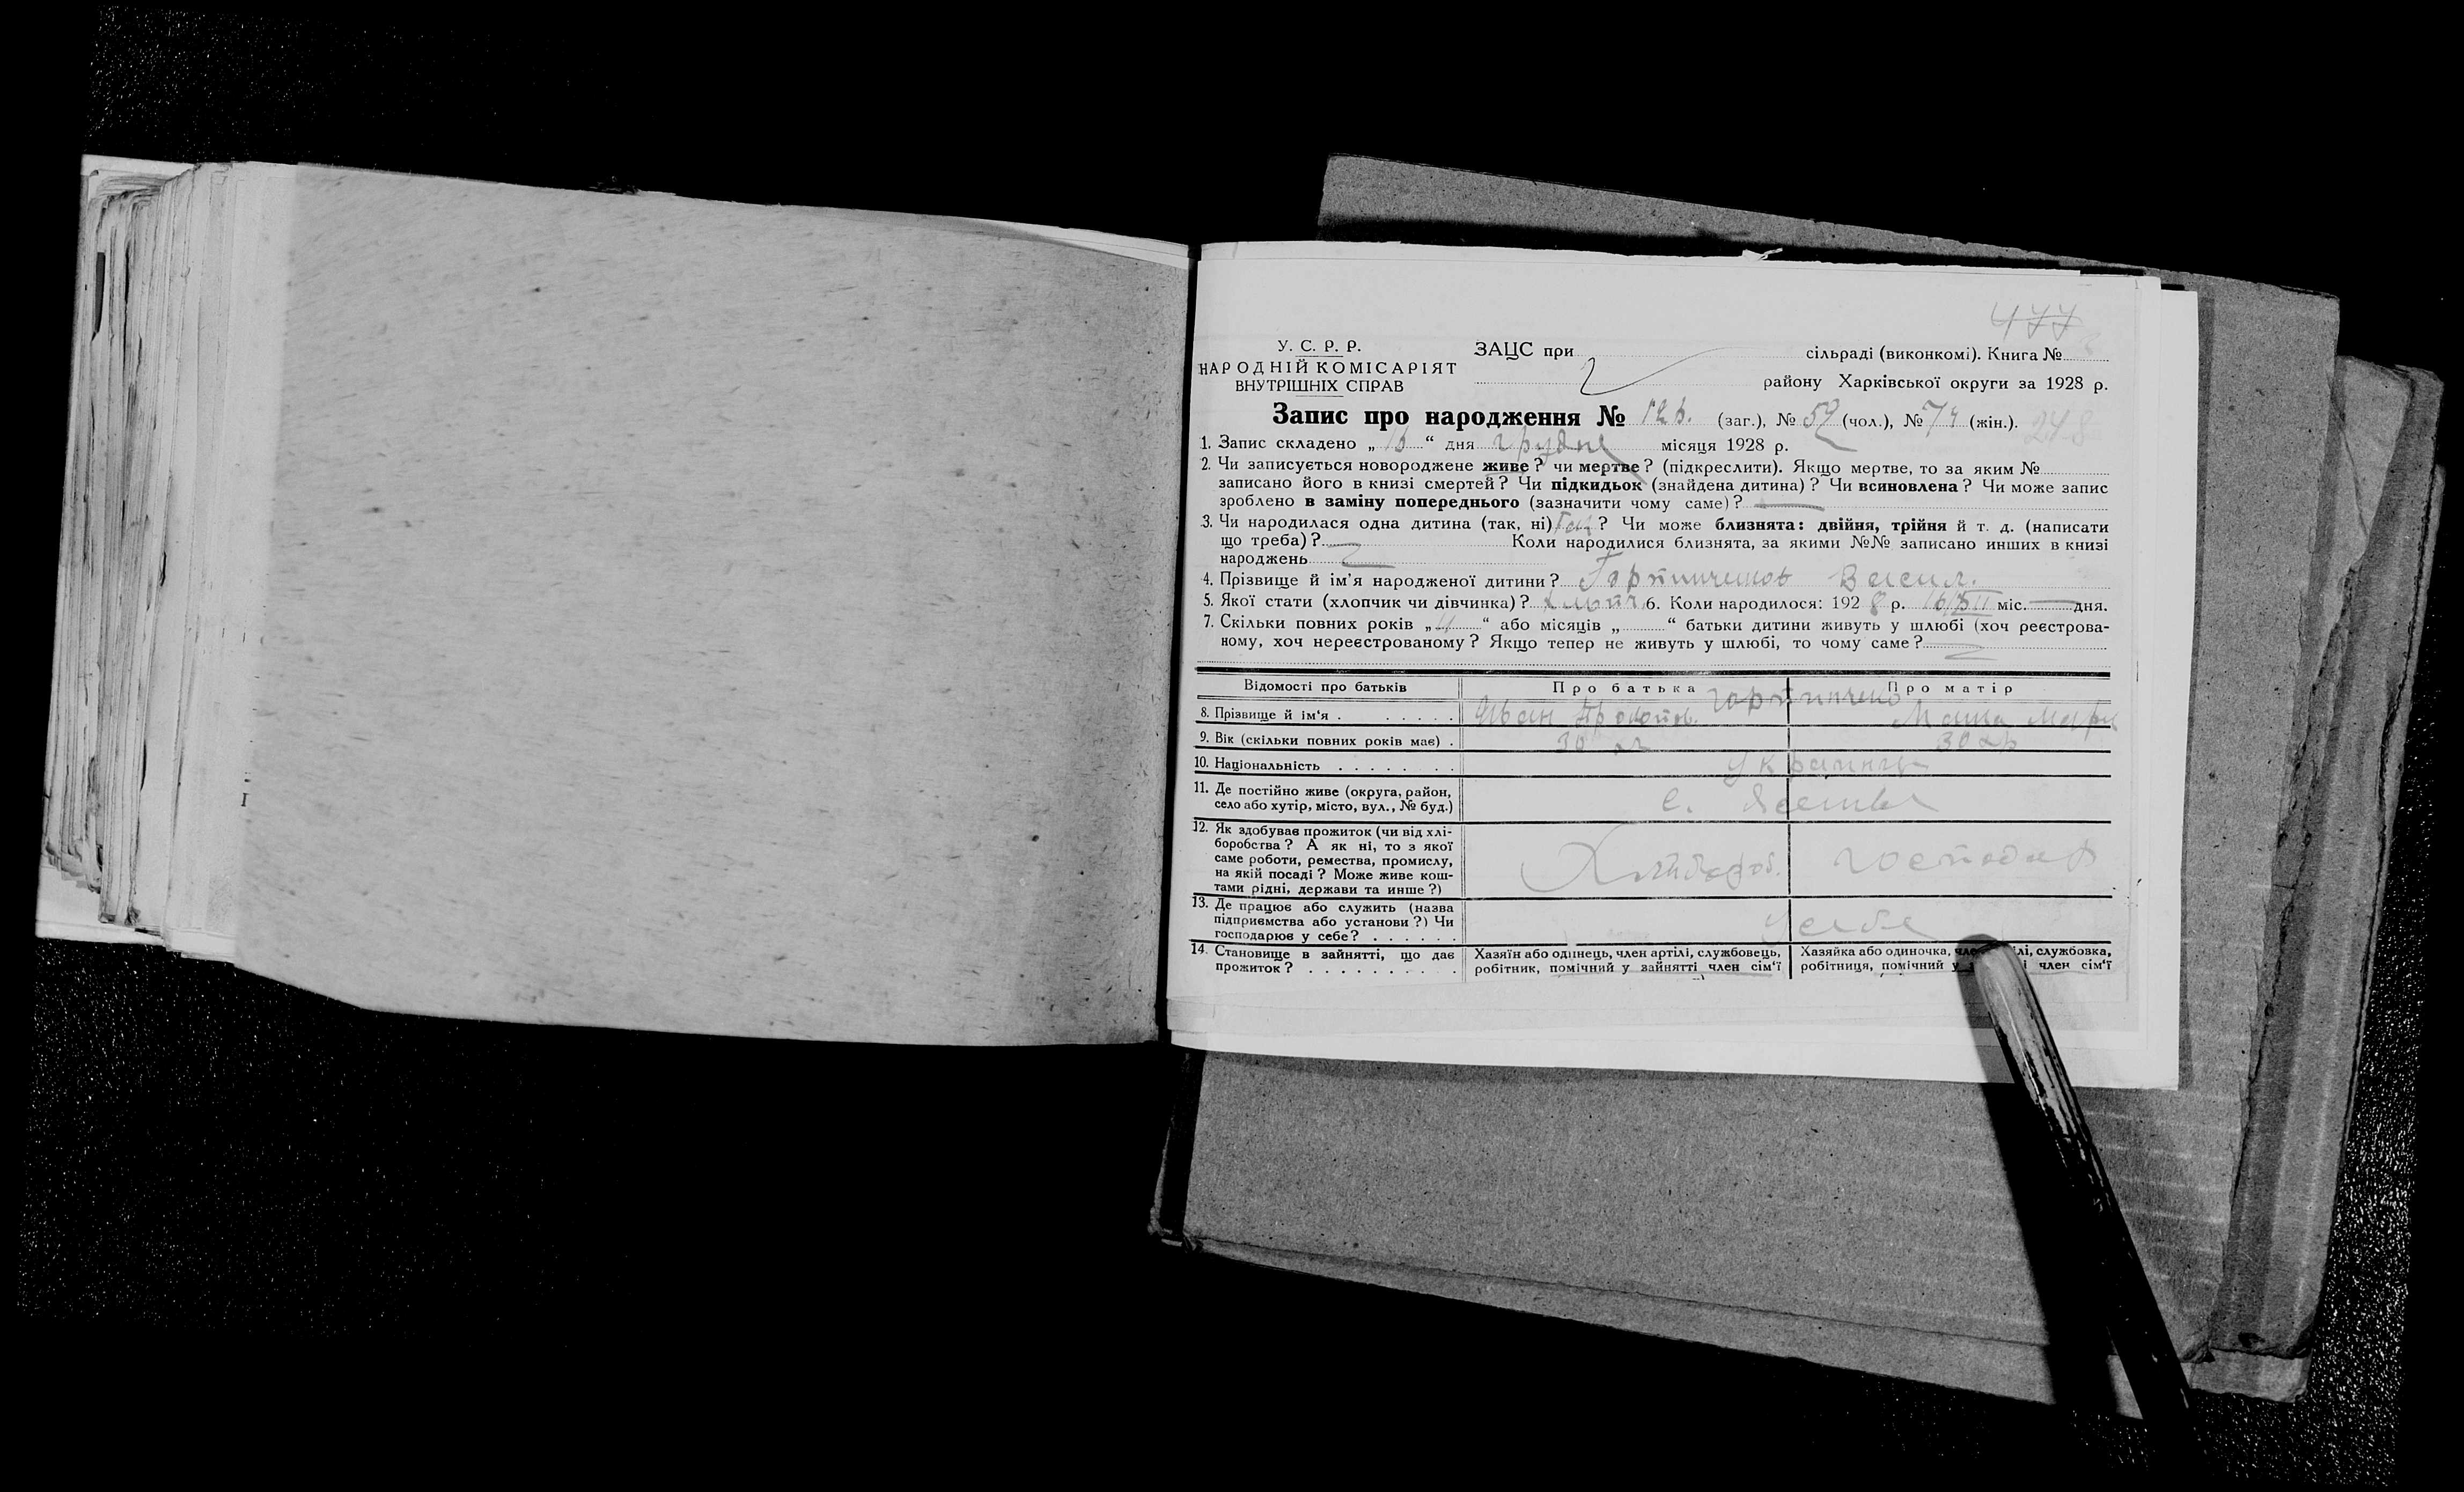 477
У. С. Р. Р.
НАРОДНІЙ КОМІСАРІЯТ
ВНУТРІШНІХ СПРАВ
ЗАЦС при сільраді (виконкомі). Книга №
району Харківської округи за 1928 р.
Запис про народження № (заг.), № 59 (чол.), № (жін.). 248
1. Запис складено „ 16 “ дня грудня місяця 1928 р.
2. Чи записується новороджене живе? чи мертве? (підкреслити). Якщо мертве, то за яким №
записано його в книзі смертей? Чи підкидьок (знайдена дитина)? Чи всиновлена? Чи може запис
зроблено в заміну попереднього (зазначити чому саме)?
3. Чи народилася одна дитина (так, ні) Так? Чи може близнята: двійня, трійня й т. д. (написати
що треба)? Коли народилися близнята, за якими №№ записано инших в книзі
народжень
4. Прізвище й ім'я народженої дитини? Василь
5. Якої стати (хлопчик чи дівчинка)? 6. Коли народилося: 1928 р. 16/XII міс. — дня.
7. Скільки повних років „ “ або місяців „ “ батьки дитини живуть у шлюбі (хоч реєстрова-
ному, хоч нереєстрованому? Якщо тепер не живуть у шлюбі, то чому саме?
Відомості про батьків Про батька Про матір
8. Прізвище й ім'я . . . . . . Иван
9. Вік (скільки повних років має) . 30 30
10. Національність . . . . . . . Українці
11. Де постійно живе (округа, район,
село або хутір, місто, вул., № буд.) с.
12. Як здобуває прожиток (чи від хлі-
боробства? А як ні, то з якої
саме роботи, ремества, промислу,
на якій посаді? Може живе кош-
тами рідні, держави та инше?)
Хлібороб. господар
13. Де працює або служить (назва
підприємства або установи?) Чи
господарює у себе? . . . . . . У себе
14. Становище в зайнятті, що дає
прожиток? . . . . . . . . .
Хазяїн або одинець, член артілі, службовець,
робітник, помічний у зайнятті член сім'ї
Хазяйка або одиночка, лі, службовка,
робітниця, помічний у член сім'ї